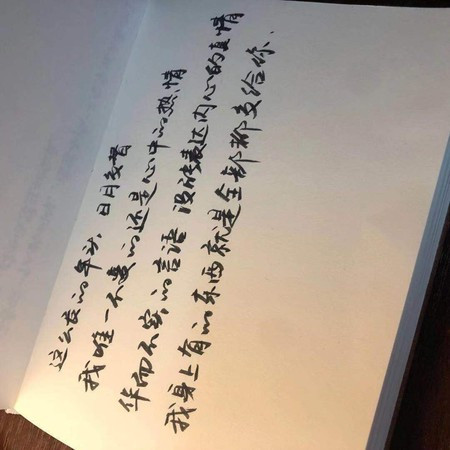 这么长的年头，日月交替
我唯一不变的还是心中的热情
华而不实的言语 没法表达内心的真情
我身上有的东西就是全部都交给你.